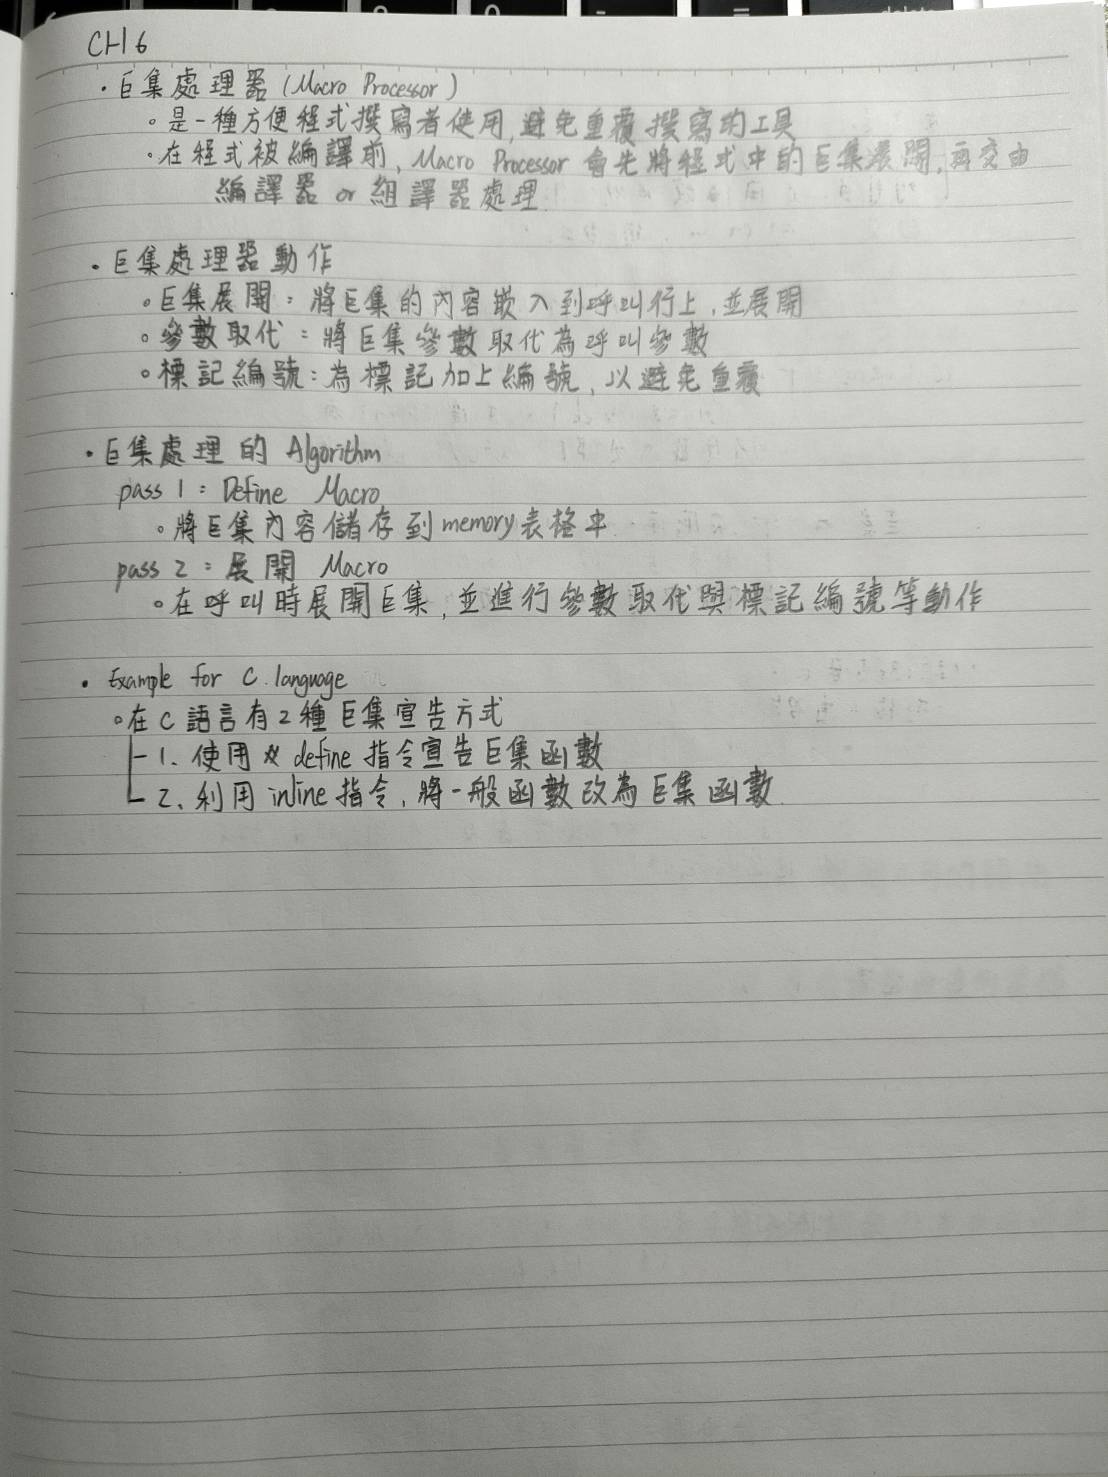 CH 6
・巨集處理器 (Macro Processor)
。是一種方便程式撰寫者使用,避免重覆撰寫的工具
。在程式被編譯前, Macro Processor 會先將程式中的巨集展開,再交由
編譯器 or 組譯器處理.
・巨集處理器動作
。巨集展開:將巨集的內容嵌入到呼叫行上,並展開
。參數取代:將巨集參數取代為呼叫參數
。標記編號:為標記加上編號,以避免重覆
・巨集處理的 Algorithm
pass 1 : Define Macro
。將巨集內容儲存到memory表格中
pass 2 : 展開 Macro
。在呼叫時展開巨集,並進行參數取代與標記編號等動作
・Example for C language
。在C語言有2種巨集宣告方式
1. 使用 # define 指令宣告巨集函數
2. 利用 inline 指令,將一般函數改為巨集函數